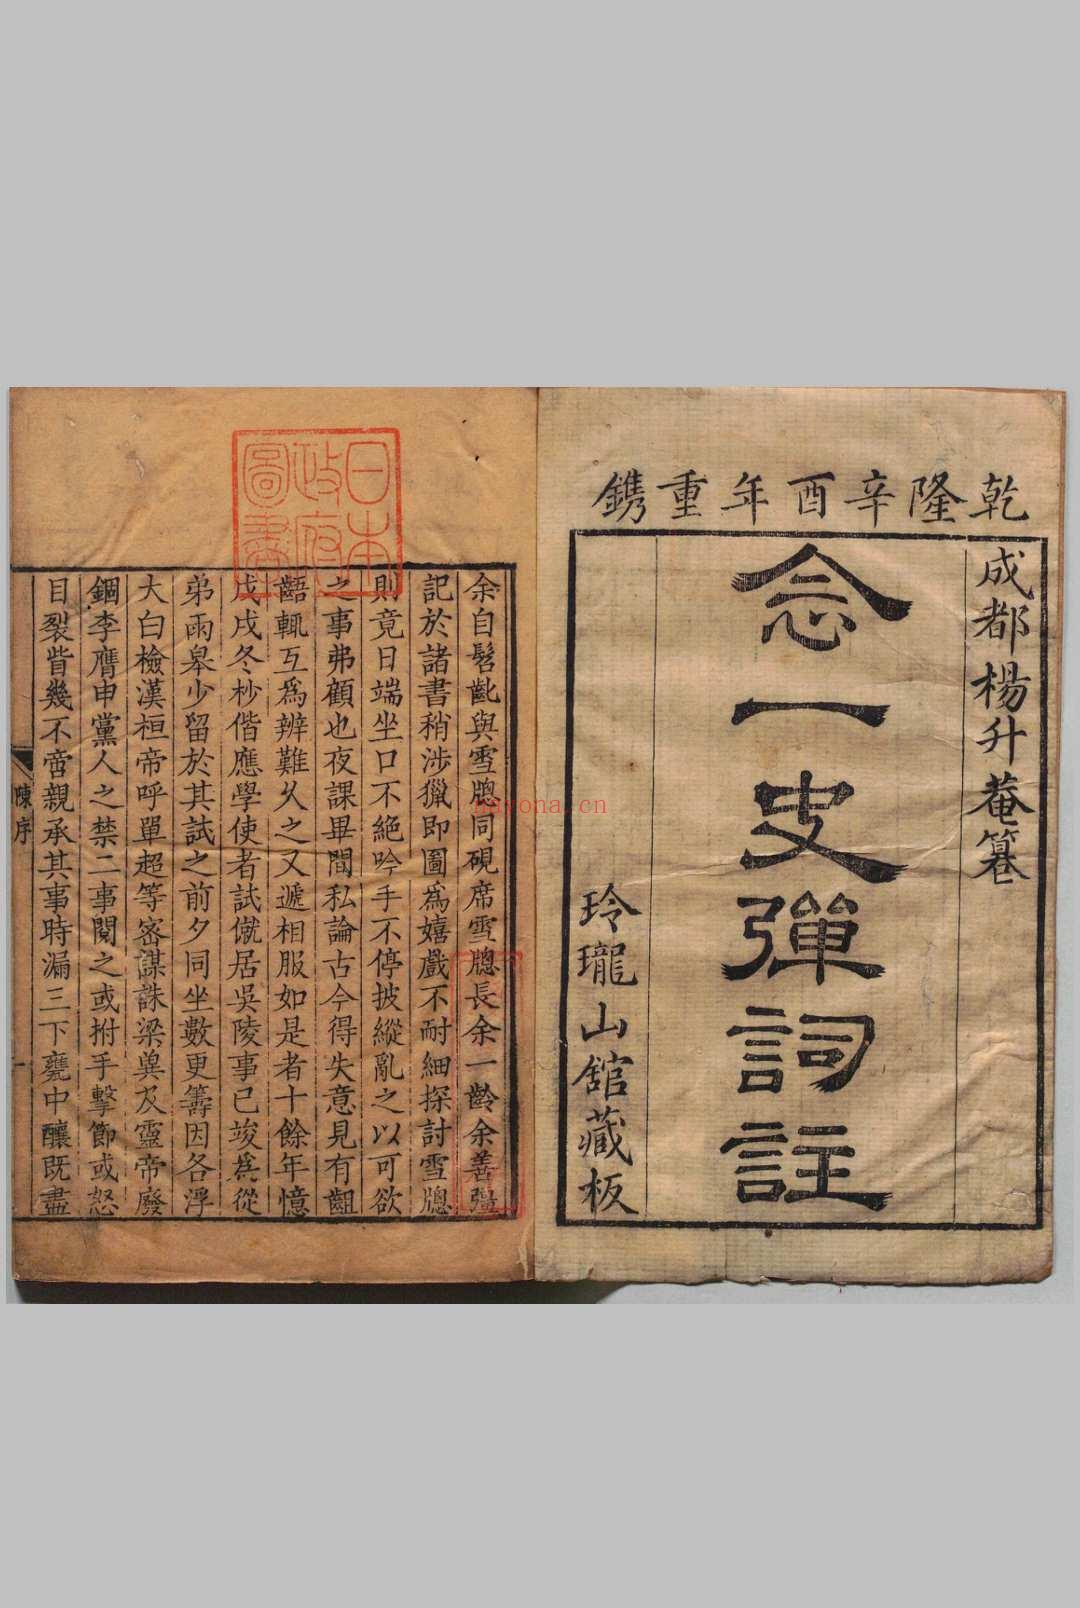 乾隆辛酉年重鐫
成都楊升菴纂
念一史彈詞註
玲瓏山館藏板
日本政府圖書
余自髫齔與雪牕同硯席雪牕長余一齡余善彊
記於諸書稍涉獵即圖爲嬉戲不耐細探討雪牕
則竟日端坐口不絕吟手不停披縱亂之以可欲
之事弗顧也夜課畢間私論古今得失意見有齟
齬輒互爲辨難久之又遞相服如是者十餘年憶
戊戌冬杪偕應學使者試僦居吳陵事已竣爲從
弟雨皋少留於其試之前夕同坐數更籌因各浮
大白檢漢桓帝呼單超等密謀誅梁兾及靈帝廢
錮李膺申黨人之禁二事閱之或拊手擊節或怒
目裂眥幾不啻親承其事時漏三下甕中釀既盡
陳序
一
nayona.cn